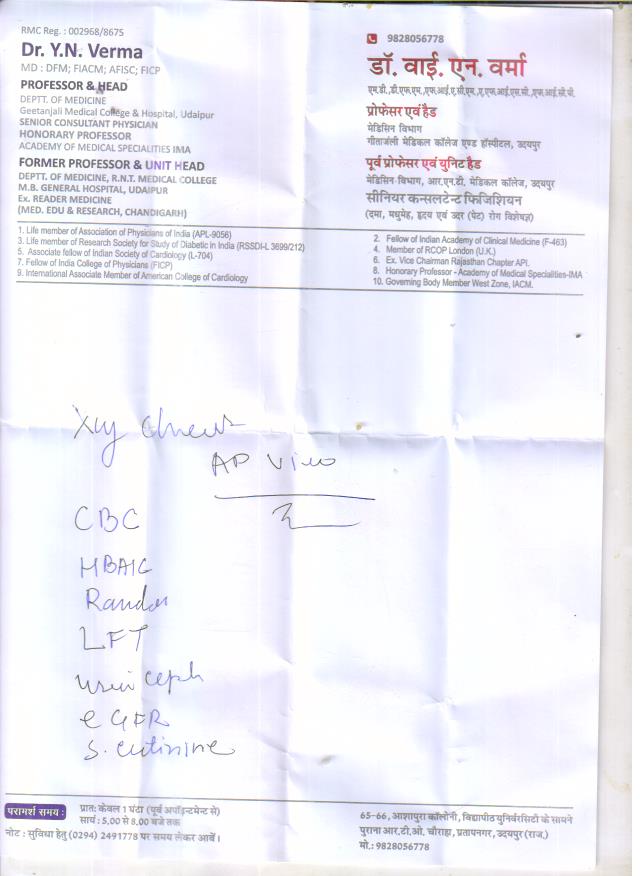 RMC Reg. : 002968/8675
Dr. Y.N. Verma
MD : DFM; FIACM; AFISC; FICP
PROFESSOR & HEAD
DEPTT. OF MEDICINE
Geetanjali Medical College & Hospital, Udaipur
SENIOR CONSULTANT PHYSICIAN
HONORARY PROFESSOR
ACADEMY OF MEDICAL SPECIALITIES IMA
FORMER PROFESSOR & UNIT HEAD
DEPTT. OF MEDICINE, R.N.T. MEDICAL COLLEGE
M.B. GENERAL HOSPITAL, UDAIPUR
Ex. READER MEDICINE
(MED. EDU & RESEARCH, CHANDIGARH)
9828056778
डॉ. वाई. एन. वर्मा
एम.डी., डी.एफ.एम., एफ.आई.ए.सी.एम., ए.एफ.आई.एस.सी., एफ.आई.सी.पी.
प्रोफेसर एवं हैड
मेडिसिन विभाग
गीतांजली मेडिकल कॉलेज एण्ड हॉस्पीटल, उदयपुर
पूर्व प्रोफेसर एवं युनिट हैड
मेडिसिन विभाग, आर.एन.टी. मेडिकल कॉलेज, उदयपुर
सीनियर कन्सलटेन्ट फिजिशियन
(दमा, मधुमेह, हृदय एवं उदर (पेट) रोग विशेषज्ञ)
1. Life member of Association of Physicians of India (APL-9056)
3. Life member of Research Society for Study of Diabetic in India (RSSDI-L 3699/212)
5. Associate fellow of Indian Society of Cardiology (L-704)
7. Fellow of India College of Physicians (FICP)
9. International Associate Member of American College of Cardiology
2. Fellow of Indian Academy of Clinical Medicine (F-463)
4. Member of RCOP London (U.K.)
6. Ex. Vice Chairman Rajasthan Chapter API.
8. Honorary Professor - Academy of Medical Specialities-IMA
10. Governing Body Member West Zone, IACM.
AP View
CBC
HBAIC
Random
LFT
eGFR
परामर्श समय :
प्रात: केवल 1 घंटा (पूर्व अपॉइन्टमेन्ट से)
सायं : 5.00 से 8.00 बजे तक
नोट : सुविधा हेतु (0294) 2491778 पर समय लेकर आवें।
65-66, आशापुरा कॉलोनी, विद्यापीठ युनिवरसिटी के सामने
पुराना आर.टी.ओ. चौराहा, प्रतापनगर, उदयपुर (राज.)
मो.: 9828056778